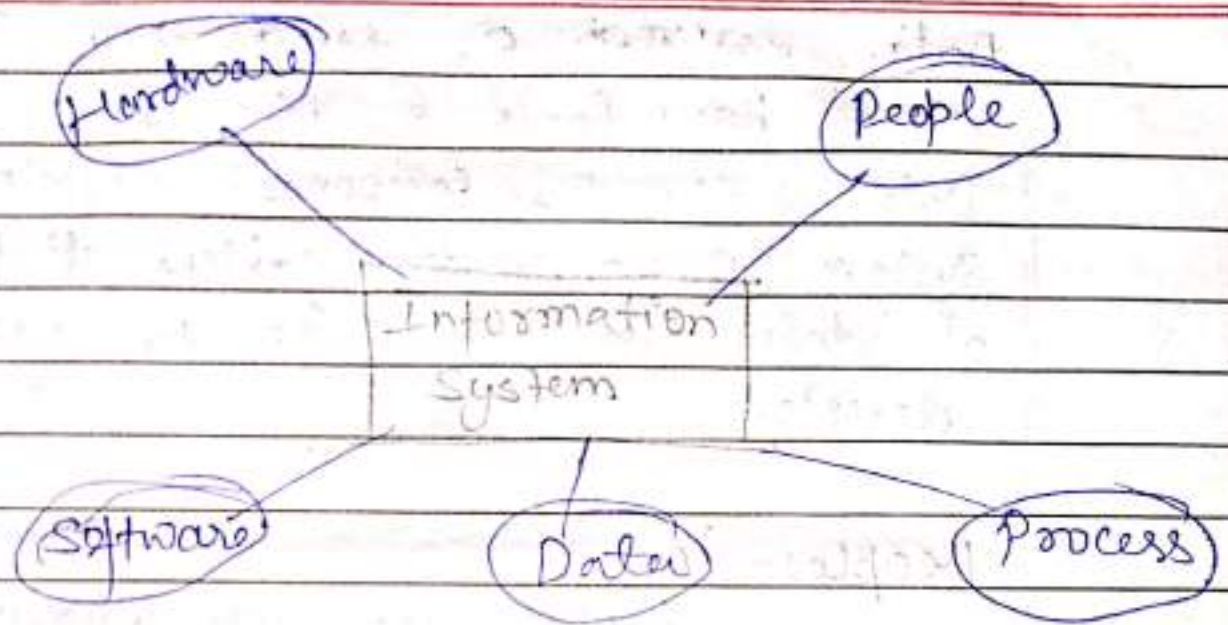 Hardware
People
Information
System
Software
Data
Process